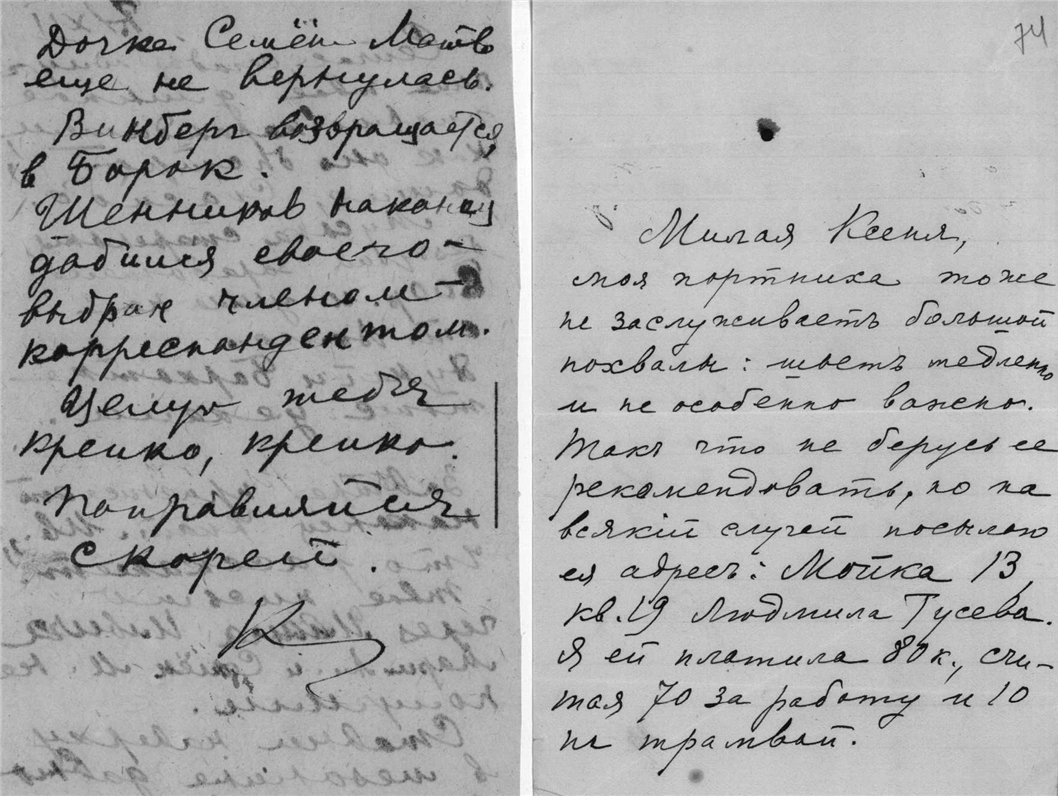 Дочка Семён Матв
еще не вернулась.
Винберг возвращается
в Борок.
Шенников наконец
добился своего –
выбран членом –
корреспондентом.
Целую тебя
крепко, крепко.
Поправляйся
скорей.
К
74
Милая Ксеня,
моя портниха тоже
не заслуживаетъ большой
похвалы: шьетъ медленно
и не особенно важно.
Такъ что не берусь ее
рекомендовать, но на
всякій случай посылаю
ея адресъ: Мойка 13,
кв. 19 Людмила Гусева.
Я ей платила 80 к., счи-
тая 70 за работу и 10
на трамвай.